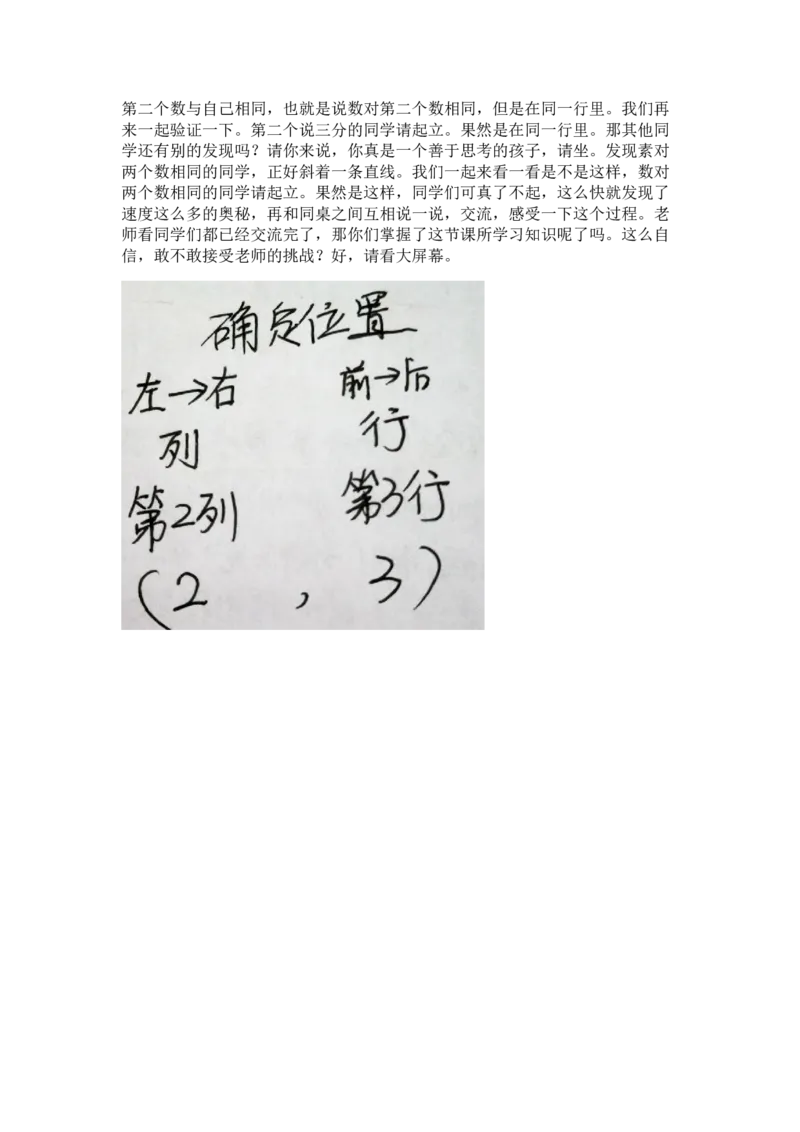 第二个数与自己相同，也就是说数对第二个数相同，但是在同一行里。我们再
来一起验证一下。第二个说三分的同学请起立。果然是在同一行里。那其他同
学还有别的发现吗？请你来说，你真是一个善于思考的孩子，请坐。发现素对
两个数相同的同学，正好斜着一条直线。我们一起来看一看是不是这样，数对
两个数相同的同学请起立。果然是这样，同学们可真了不起，这么快就发现了
速度这么多的奥秘，再和同桌之间互相说一说，交流，感受一下这个过程。老
师看同学们都已经交流完了，那你们掌握了这节课所学习知识呢了吗。这么自
信，敢不敢接受老师的挑战？好，请看大屏幕。
确定位置
左→右 前→后
列 行
第2列 第3行
(2 , 3)